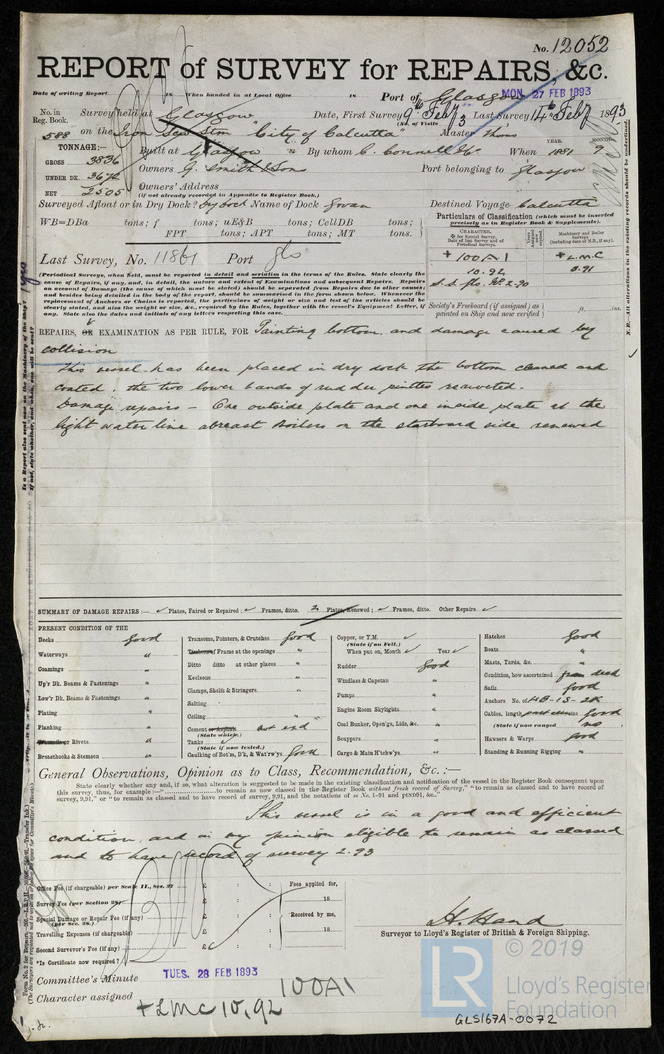 No. 12052
REPORT of SURVEY for REPAIRS, &c.
Date of writing Report 18 When handed in at Local Office 18 Port of Glasgow MON. 27 FEB 1893
No. in Reg. Book. Survey held at Glasgow Date, First Survey 9th Feb Last Survey 14th Feb 1893
(No. of Visits 3)
588 on the Iron Screw Stm "City of Calcutta" Master Thoms
TONNAGE:— Built at Glasgow By whom C. Connell & Co When 1881 9
YEAR. MONTH.
GROSS 3836
Owners G. Smith & Sons Port belonging to Glasgow
UNDER DK. 3672
Owners' Address
NET 2505
(if not already recorded in Appendix to Register Book.)
Surveyed Afloat or in Dry Dock? Dry dock Name of Dock Govan Destined Voyage Calcutta
WB=DBa tons; f tons; uE&B tons; CellDB tons;
FPT tons; APT tons; MT tons.
Particulars of Classification (which must be inserted precisely as in Register Book & Supplements).
CHARACTER.
Machinery and Boiler Surveys (including date of N.B., if any).
Last Survey, No. 11861 Port Gls
+ 100A1 + LMC
10.92 8.91
S.S. Gls. No. 2.90
(Periodical Surveys, when Held, must be reported in detail and seriatim in the terms of the Rules. State clearly the
cause of Repairs, if any, and, in detail, the nature and extent of Examinations and subsequent Repairs. Repairs
on account of Damage (the cause of which must be stated) should be separated from Repairs due to other causes;
and besides being detailed in the body of the report, should be summarised in the form shown below. Whenever the
replacement of Anchors or Chains is reported, the particulars of weight or size and test of the articles should be
clearly stated, and also the weight or size, &c., required by the tables, together with the vessel's Equipment Letter, if
any. State also the dates and initials of any letters respecting this case.
Society's Freeboard (if assigned) as painted on Ship and now verified ft. ins.
REPAIRS, OR EXAMINATION AS PER RULE, FOR Painting bottom, and damage caused by
collision
This vessel has been placed in dry dock the bottom cleaned and
coated. the two lower bands of rudder pintles reriveted.
Damage repairs – One outside plate and one inside plate at the
light water line abreast boilers on the starboard side renewed
SUMMARY OF DAMAGE REPAIRS:— Plates, Faired or Repaired; Frames, ditto. 2 Plates, Renewed; Frames, ditto. Other Repairs
PRESENT CONDITION OF THE
Decks good
Waterways "
Coamings "
Up'r Dk. Beams & Fastenings "
Low'r Dk. Beams & Fastenings "
Plating "
Planking "
or Rivets "
Breasthooks & Stemson "
Transoms, Pointers, & Crutches good
Frame at the openings "
Ditto ditto at other places "
Keelsons "
Clamps, Shelfs & Stringers "
Salting
Ceiling "
Cement or Asphalt (State which.)
Tanks (State if now tested.)
Caulking of Bot'm, D'k, & Wat'rw'ys good
Copper, or Y.M. (State if on Felt.)
When put on, Month Year
Rudder good
Windlass & Capstan "
Pumps "
Engine Room Skylights "
Coal Bunker, Open'gs, Lids, &c. "
Scuppers "
Cargo & Main H'tchw'ys "
Hatches good
Boats "
Masts, Yards, &c. "
Condition, how ascertained from deck
Sails good
Anchors No. 4B-1S-2K
Cables, length good
(State if now ranged no)
Hawsers & Warps good
Standing & Running Rigging "
General Observations, Opinion as to Class, Recommendation, &c.:—
State clearly whether any and, if so, what alteration is suggested to be made in the existing classification and notification of the vessel in the Register Book consequent upon
this survey, thus, for example:—"to remain as now classed in the Register Book without fresh record of Survey," "to remain as classed and to have record of
survey, 9,91," or "to remain as classed and to have record of survey, 9,91, and the notations of ss No. 1-91 and ptND91, &c."
This vessel is in a good and efficient
condition, and in my opinion eligible to remain as classed
and to have record of survey 2.93
Office Fee (if chargeable) per Scale II., Sec. 27 £ : : Fees applied for,
Survey Fee (per Section 28) £ : : 18
Special Damage or Repair Fee (if any) (per Sec. 28.) £ : : Received by me,
Travelling Expenses (if chargeable) £ : : 18
Second Surveyor's Fee (if any) £ : :
*Is Certificate now required?
H. Hand
Surveyor to Lloyd's Register of British & Foreign Shipping.
Committee's Minute TUES. 28 FEB 1893
Character assigned 100A1
+ LMC 10,92
© 2019
LR
Lloyd's Register
Foundation
GLS167A-0072